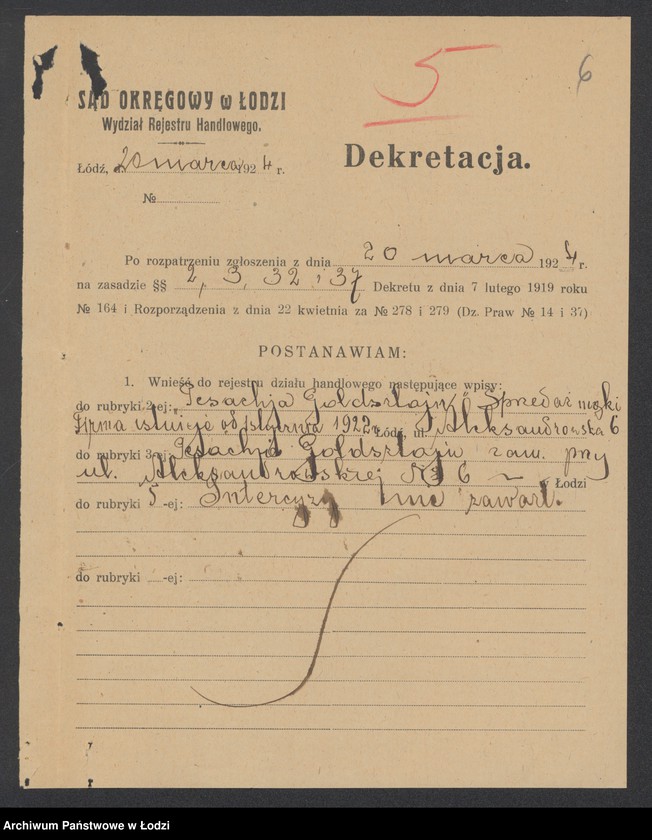 5
6
SĄD OKRĘGOWY w ŁODZI
Wydział Rejestru Handlowego.
Łódź, d. 20 marca 1924 r.
№
Dekretacja.
Po rozpatrzeniu zgłoszenia z dnia 20 marca 1924 r.
na zasadzie §§ 2, 3, 32 i 37 Dekretu z dnia 7 lutego 1919 roku
№ 164 i Rozporządzenia z dnia 22 kwietnia za № 278 i 279 (Dz. Praw № 14 i 37)
POSTANAWIAM:
1. Wnieść do rejestru działu handlowego następujące wpisy:
do rubryki 2-ej: „Jesachja Goldsztajn" Sprzedaż mąki
Firma istnieje od stycznia 1922 r. Łódź, ul. Aleksandrowska 6
do rubryki 3-ej: Jesachja Goldsztajn zam. przy
ul. Aleksandrowskiej № 6 w Łodzi
do rubryki 5-ej: Intercyzy nie zawarł.
do rubryki -ej:
Archiwum Państwowe w Łodzi